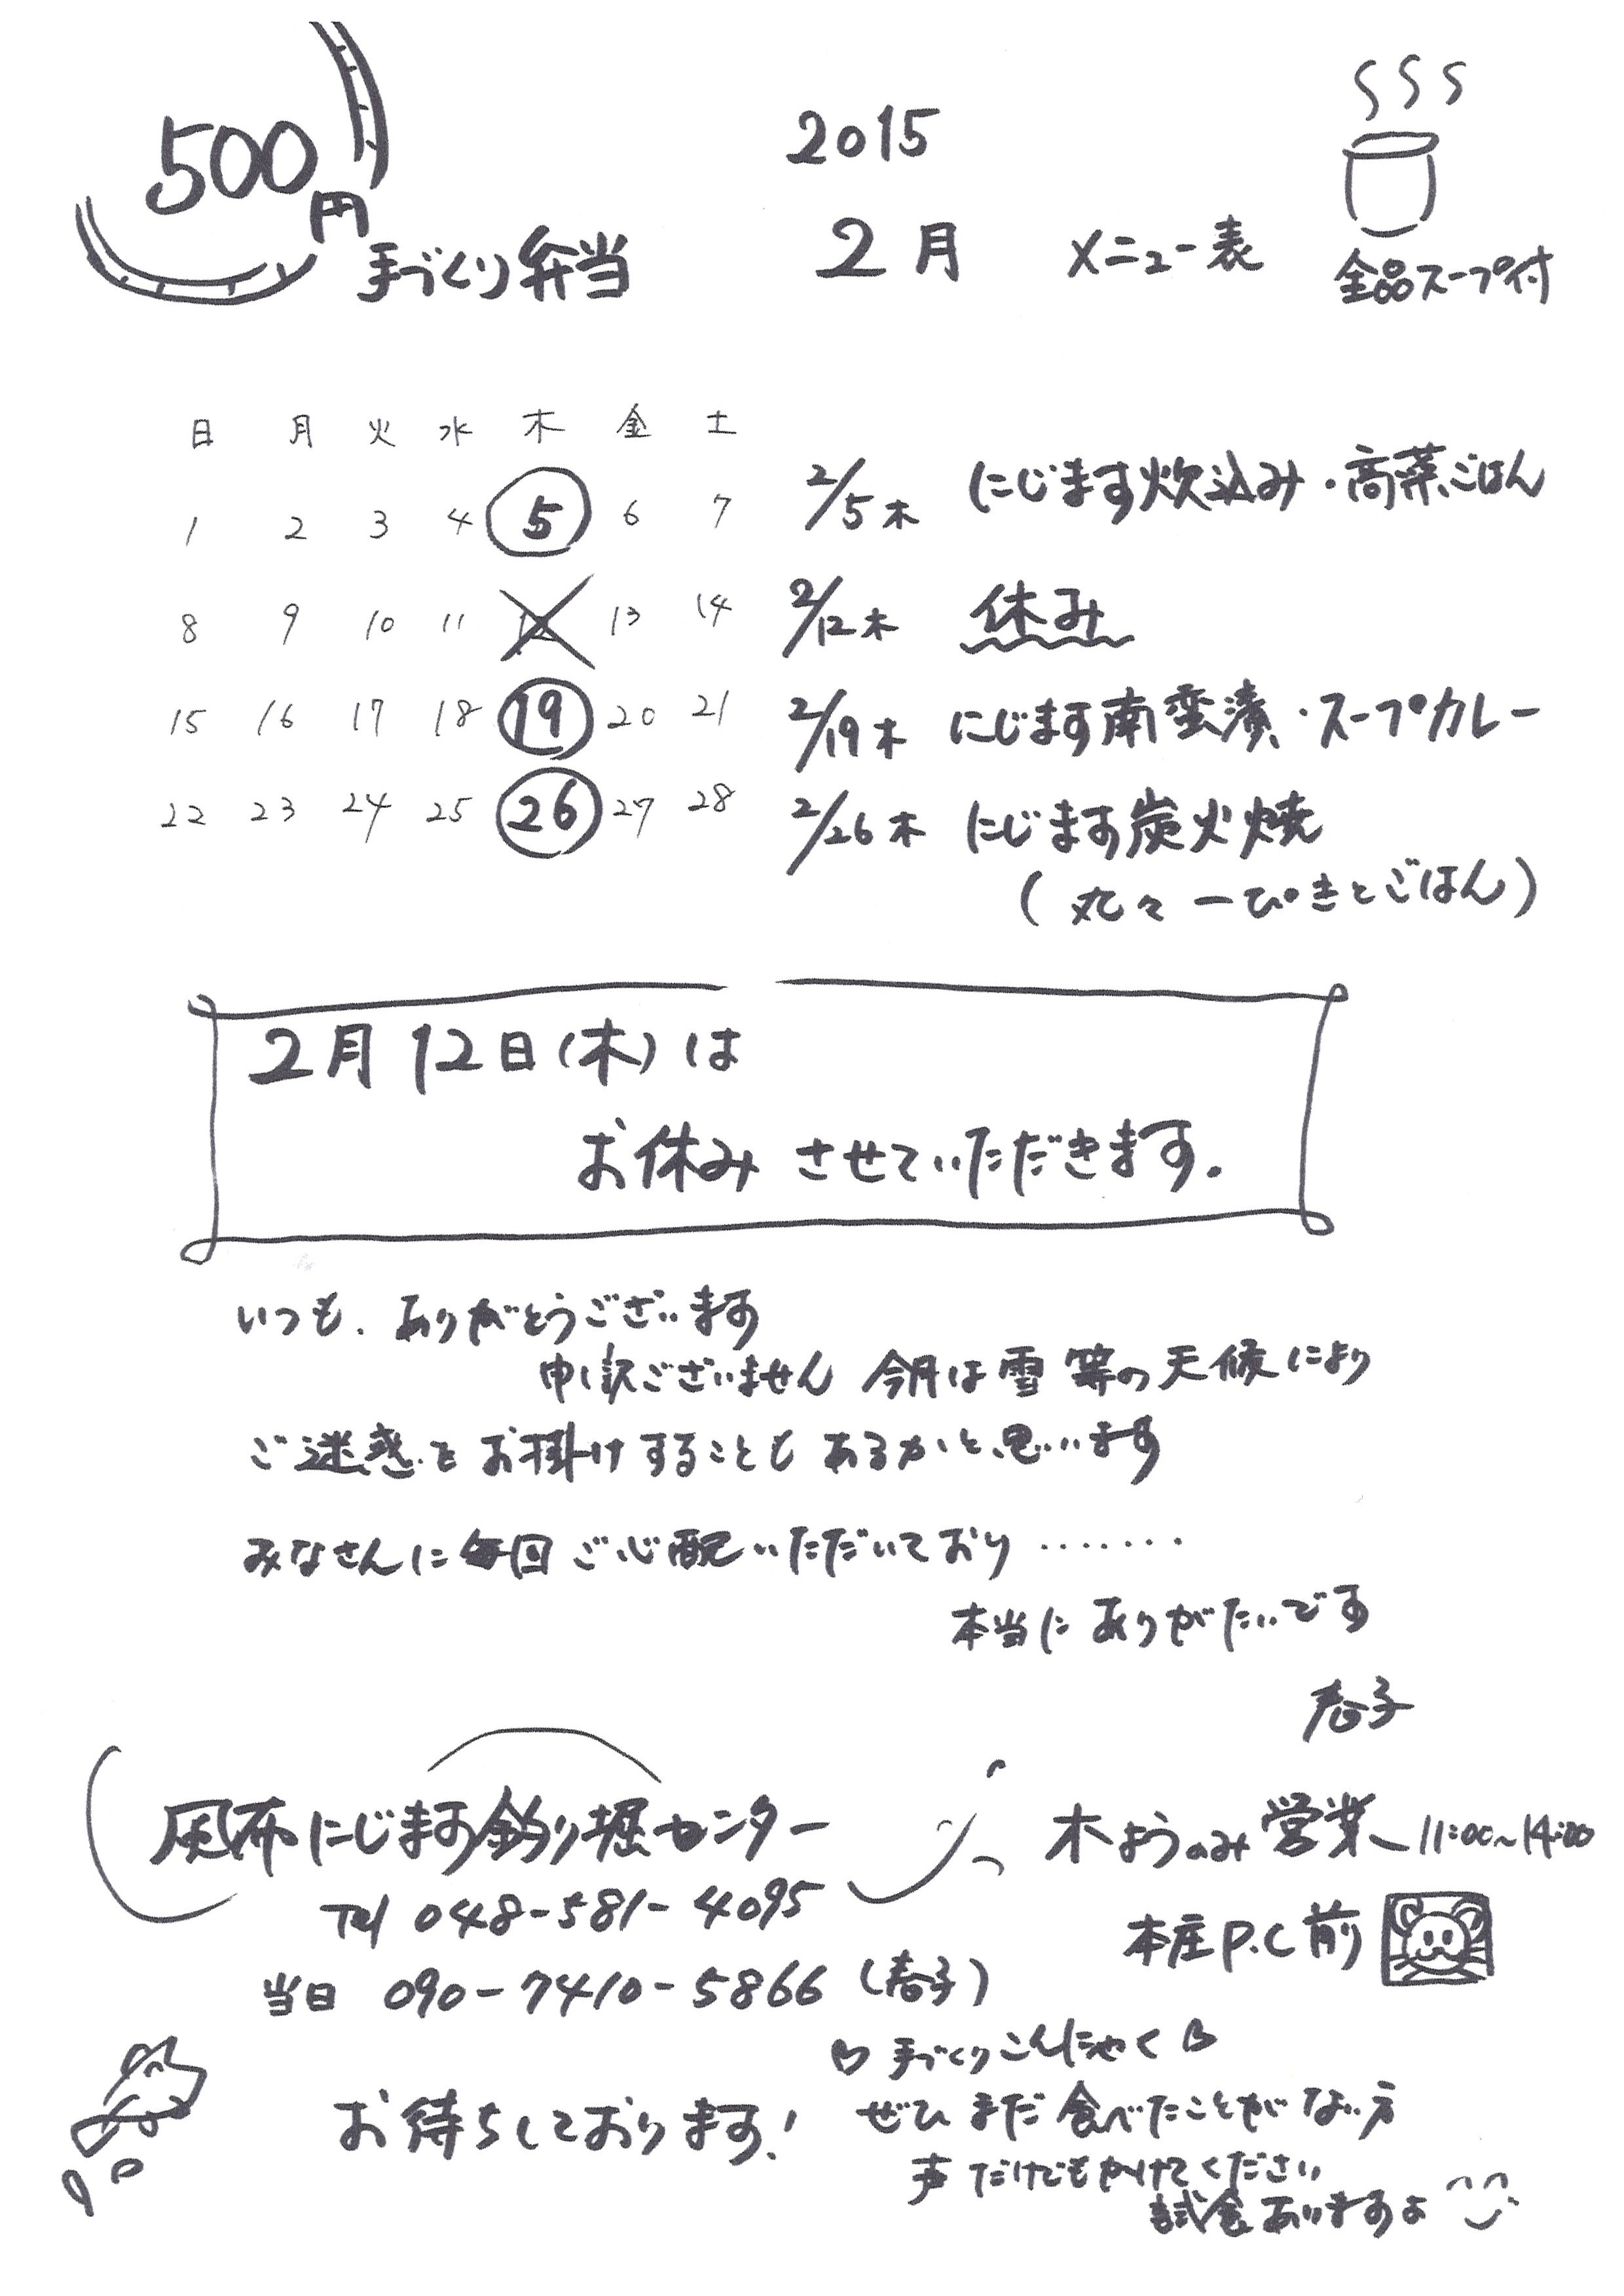 500円
手づくり弁当
2015
2月 メニュー表
全品スープ付
日 月 火 水 木 金 土
1 2 3 4 5 6 7
8 9 10 11 12 13 14
15 16 17 18 19 20 21
22 23 24 25 26 27 28
2/5木 にじます炊込み・高菜ごはん
2/12木 休み
2/19木 にじます南蛮漬・スープカレー
2/26木 にじます炭火焼
(丸々一ぴきとごはん)
2月12日(木)は
お休みさせていただきます.
いつも、ありがとうございます
申し訳ございません 今月は雪等の天候により
ご迷惑をお掛けすることもあるかと思います
みなさんに毎回ご心配いただいており・・・・・・・
本当にありがたいです
春子
風布にじます釣り堀センター
Tel 048-581-4095
当日 090-7410-5866 (春子)
木ようのみ営業 11:00~14:00
本庄P.C前
お待ちしております!
♡手づくりこんにゃく♡
ぜひまだ食べたことがない方
声だけでもかけてください
試食ありますよ